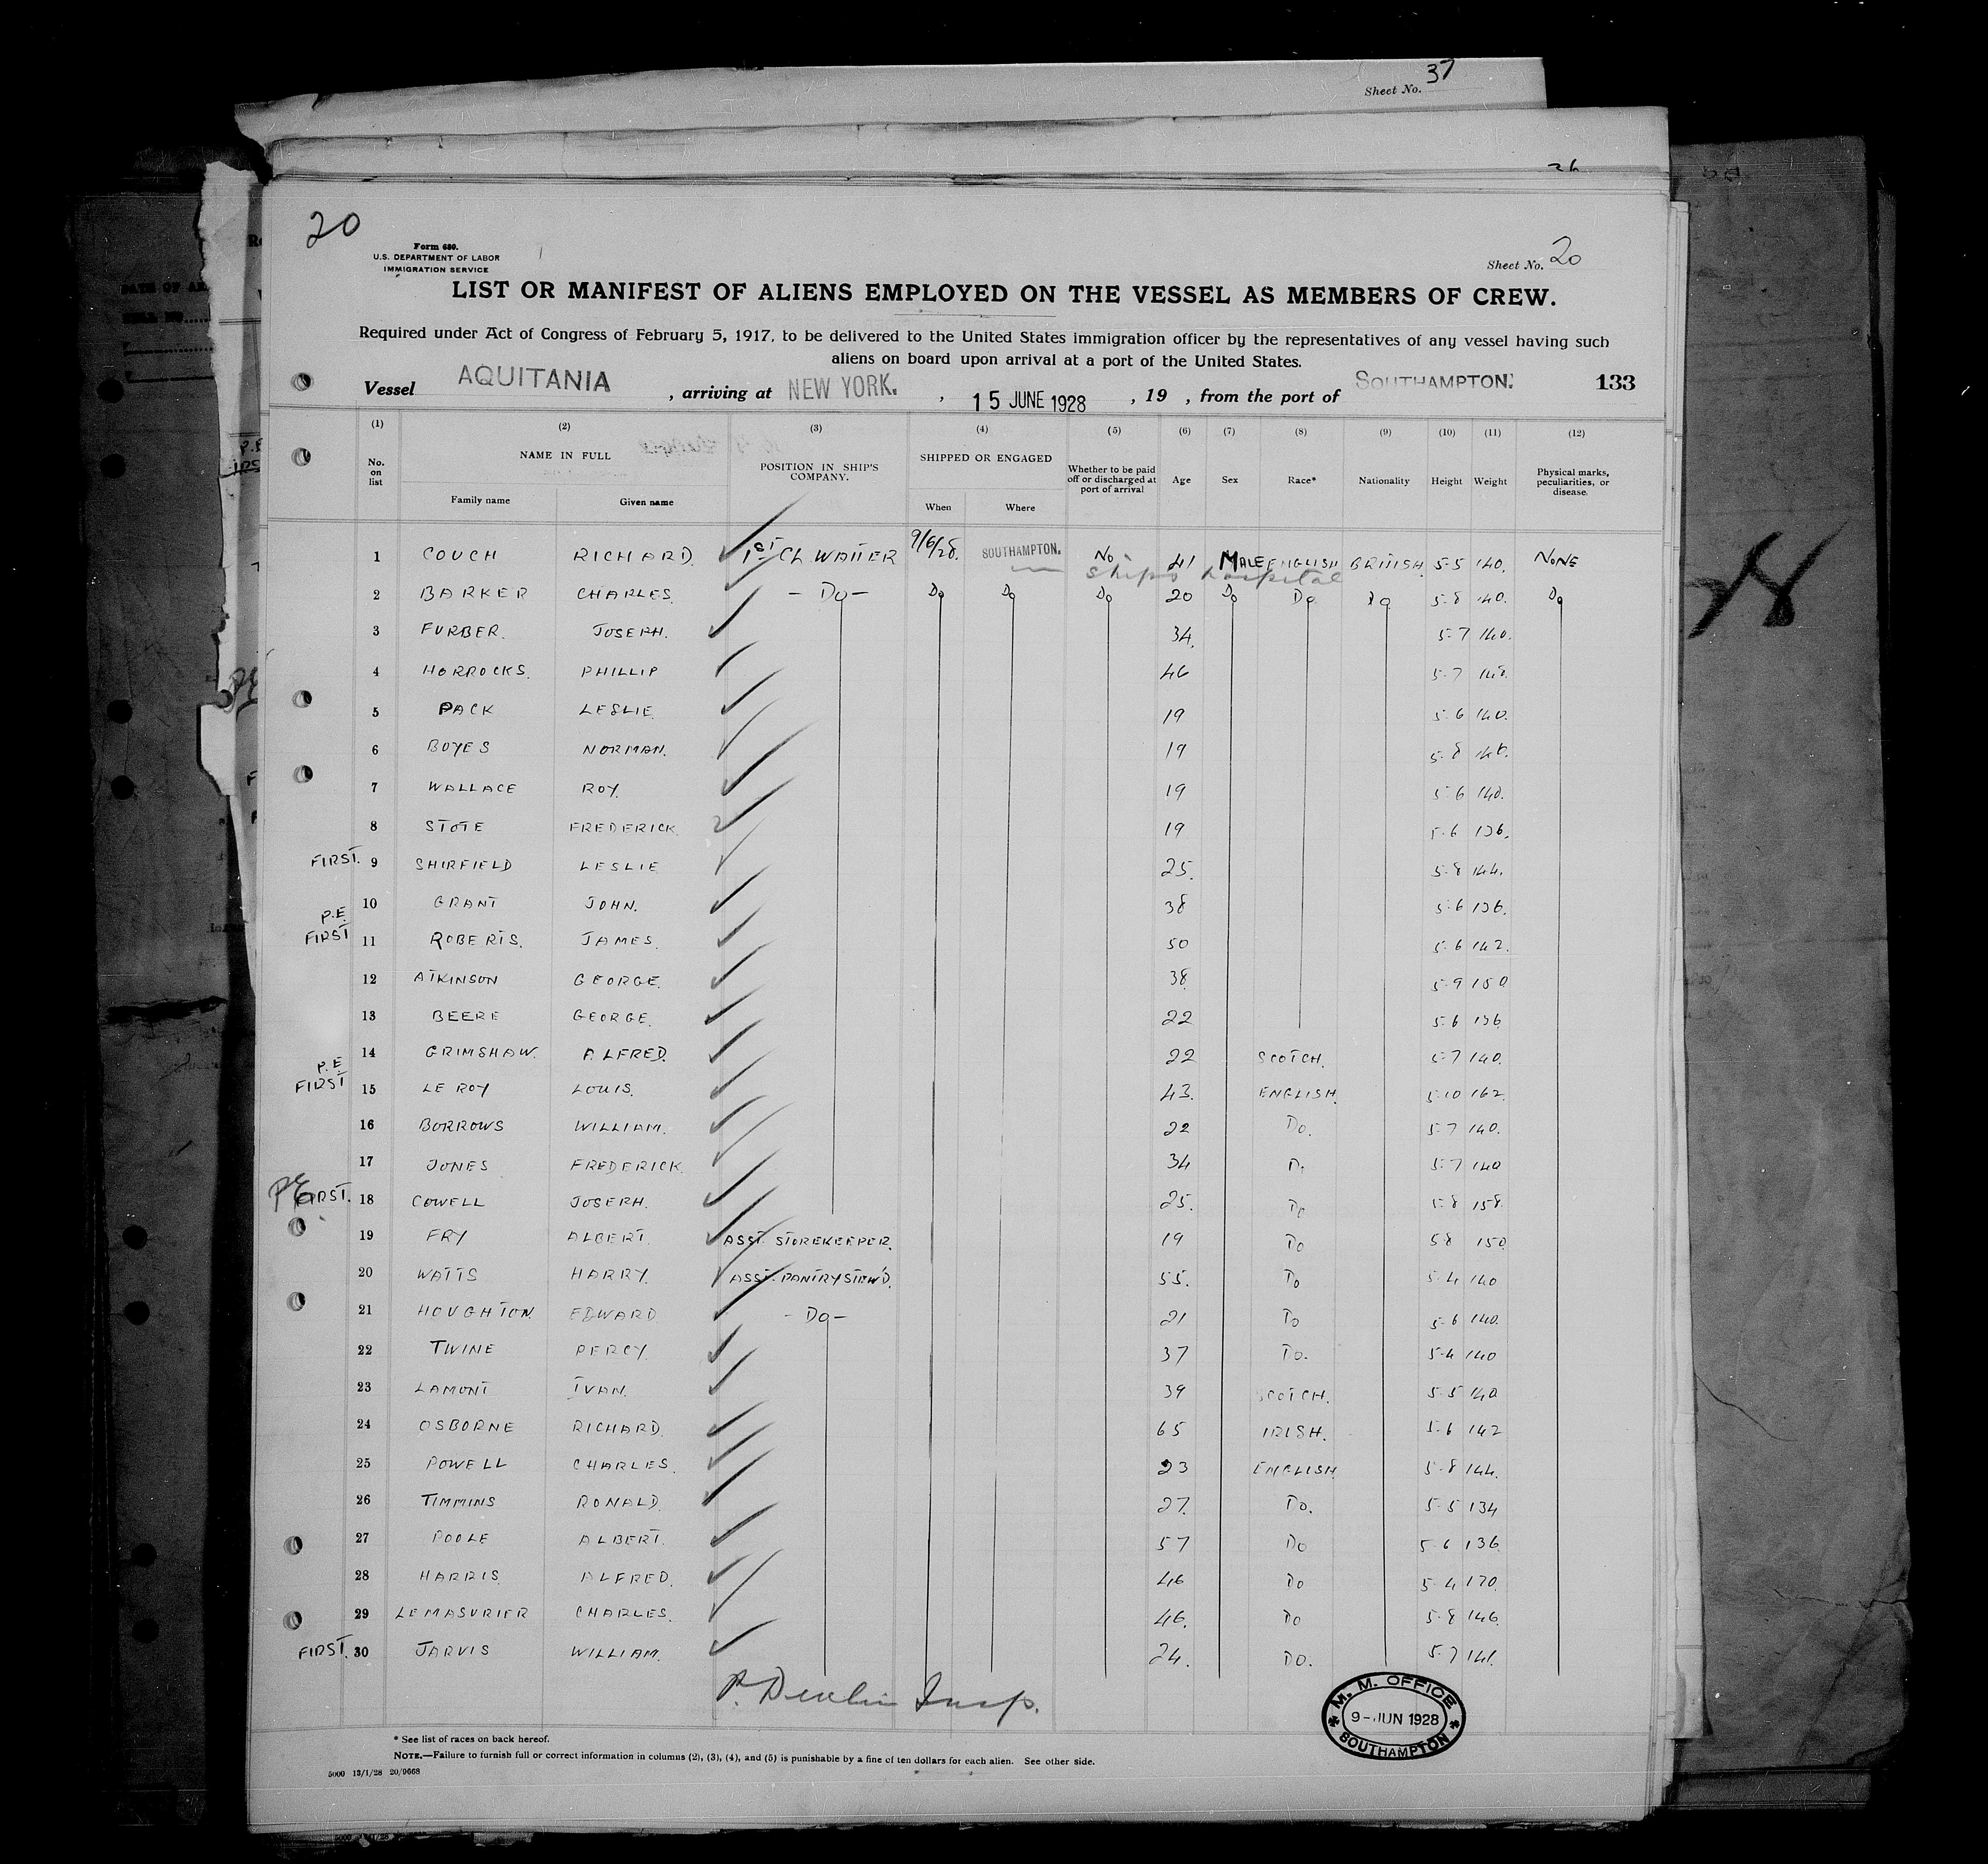 Sheet No. 37
20
Form 680.
U.S. DEPARTMENT OF LABOR
IMMIGRATION SERVICE
Sheet No. 20
LIST OR MANIFEST OF ALIENS EMPLOYED ON THE VESSEL AS MEMBERS OF CREW.
Required under Act of Congress of February 5, 1917, to be delivered to the United States immigration officer by the representatives of any vessel having such
aliens on board upon arrival at a port of the United States.
Vessel AQUITANIA , arriving at NEW YORK. , 15 JUNE 1928 , 19 , from the port of SOUTHAMPTON. 133
(1) (2) (3) (4) (5) (6) (7) (8) (9) (10) (11) (12)
No. on list NAME IN FULL Family name Given name POSITION IN SHIP'S COMPANY. SHIPPED OR ENGAGED When Where Whether to be paid off or discharged at port of arrival Age Sex Race* Nationality Height Weight Physical marks, peculiarities, or disease.
1 COUCH RICHARD. 1ST CL WAITER 9/6/28. SOUTHAMPTON. No. 41 MALE ENGLISH BRITISH 5-5 140. NONE
ships hospital
2 BARKER CHARLES. - Do - Do Do Do 20 Do Do Do 5-8 140. Do
3 FURBER. JOSEPH. 34. 5-7 140.
4 HORROCKS. PHILLIP 46 5-7
5 PACK LESLIE. 19 5-6 140.
6 BOYES NORMAN. 19 5-8
7 WALLACE ROY. 19 5-6 140.
8 STOTE FREDERICK. 19 5-6 136.
FIRST. 9 SHIRFIELD LESLIE 25. 5-8 144.
10 GRANT JOHN. 38 5-6 136.
P.E.
FIRST 11 ROBERTS. JAMES. 50 5-6 142.
12 ATKINSON GEORGE. 38. 5-9 150
13 BEERE GEORGE. 22 5-6 136
14 GRIMSHAW. ALFRED. 22 SCOTCH. 5-7 140.
P.E
FIRST 15 LE ROY LOUIS. 43. ENGLISH. 5-10 162.
16 BORROWS WILLIAM. 22 Do. 5-7 140.
17 JONES FREDERICK. 34 Do 5-7 140
PE FIRST. 18 COWELL JOSEPH. 25. Do 5-8 158.
19 FRY ALBERT. ASST. STOREKEEPER. 19 Do 5-8 150
20 WATTS HARRY. ASST. PANTRY STEW'D. 55. Do 5-4 140
21 HOUGHTON. EDWARD - Do - 21 Do 5-6 140.
22 TWINE PERCY. 37 Do. 5-4 140
23 LAMONT IVAN. 39 SCOTCH. 5-5 140
24 OSBORNE RICHARD. 65 IRISH. 5-6 142
25 POWELL CHARLES. 23 ENGLISH. 5-8 144.
26 TIMMINS RONALD. 27. Do. 5-5 134
27 POOLE ALBERT. 57 Do 5-6 136
28 HARRIS. ALFRED. 46 Do 5-4
29 LEMASURIER CHARLES. 46. Do 5-8 146.
FIRST. 30 JARVIS WILLIAM. 24. Do. 5-7
P. Devlin Insp.
M. M. OFFICE
9-JUN 1928
SOUTHAMPTON
* See list of races on back hereof.
NOTE.—Failure to furnish full or correct information in columns (2), (3), (4), and (5) is punishable by a fine of ten dollars for each alien. See other side.
5000 13/1/28 20/9668